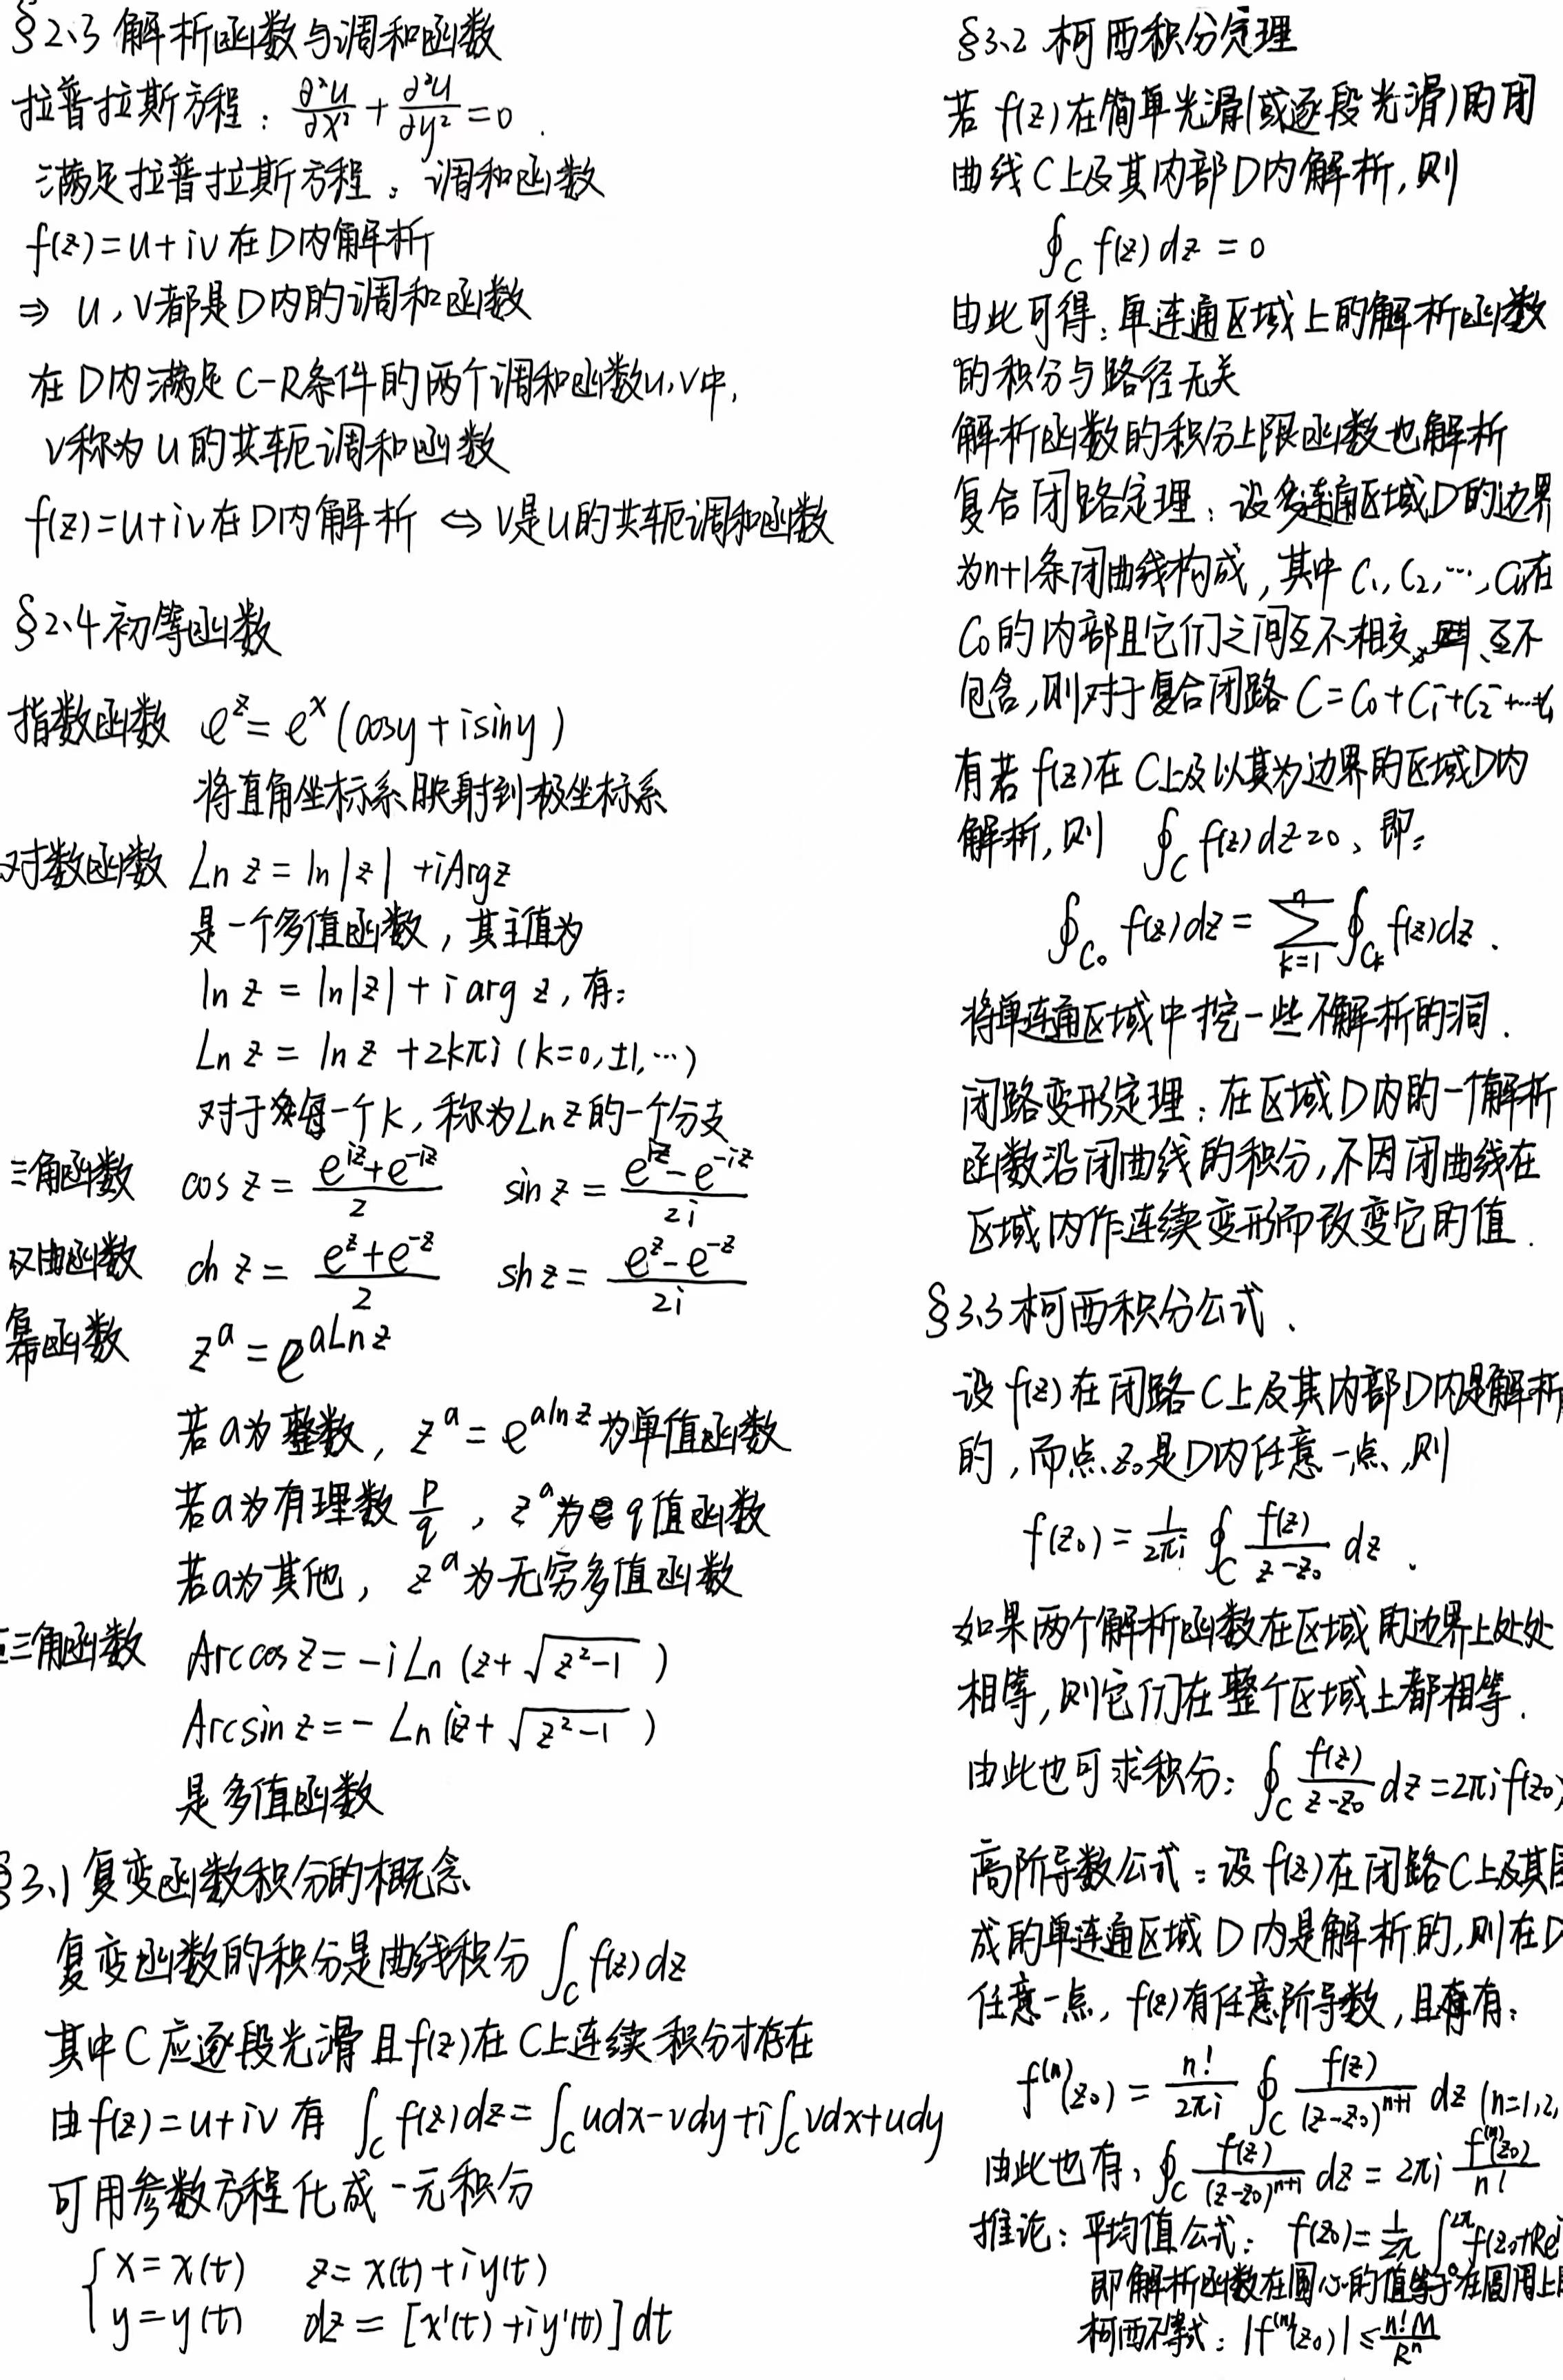 §2.3 解析函数与调和函数
拉普拉斯方程：∂²u/∂x² + ∂²u/∂y² = 0.
满足拉普拉斯方程：调和函数
f(z)=u+iv在D内解析
⇒ u,v都是D内的调和函数
在D内满足C-R条件的两个调和函数u,v中,
v称为u的共轭调和函数
f(z)=u+iv在D内解析 ⇔ v是u的共轭调和函数
§2.4 初等函数
指数函数 e^z = e^x(cosy+isiny)
将直角坐标系映射到极坐标系
对数函数 Ln z = ln|z| + iArgz
是一个多值函数，其主值为
ln z = ln|z| + i arg z, 有:
Ln z = ln z + 2kπi (k=0,±1,…)
对于每一个k, 称为Ln z的一个分支
三角函数 cos z = (e^{iz}+e^{-iz})/2 sin z = (e^{iz}-e^{-iz})/2i
双曲函数 ch z = (e^z+e^{-z})/2 sh z = (e^z-e^{-z})/2i
幂函数 z^a = e^{aLn z}
若a为整数, z^a = e^{aln z}为单值函数
若a为有理数 p/q , z^a为q值函数
若a为其他, z^a为无穷多值函数
三角函数 Arccos z = -iLn(z+√(z²-1))
Arcsin z = -Ln(iz+√(z²-1))
是多值函数
§3.1 复变函数积分的概念
复变函数的积分是曲线积分 ∫_C f(z)dz
其中C应逐段光滑且f(z)在C上连续积分才存在
由f(z)=u+iv有 ∫_C f(z)dz = ∫_C udx-vdy+i∫_C vdx+udy
可用参数方程化成一元积分
{ x=x(t) z=x(t)+iy(t)
y=y(t) dz=[x'(t)+iy'(t)]dt
§3.2 柯西积分定理
若f(z)在简单光滑(或逐段光滑)的闭
曲线C上及其内部D内解析, 则
∮_C f(z)dz = 0
由此可得: 单连通区域上的解析函数
的积分与路径无关
解析函数的积分上限函数也解析
复合闭路定理: 设多连通区域D的边界
为n+1条闭曲线构成, 其中C₁,C₂,…,Cₙ在
C₀的内部且它们之间互不相交、互不
包含, 则对于复合闭路C=C₀+C₁⁻+C₂⁻+…
有若f(z)在C上及以其为边界的区域D内
解析, 则 ∮_C f(z)dz=0、即:
∮_{C₀} f(z)dz = Σ_{k=1}^{n} ∮_{C_k} f(z)dz.
将单连通区域中挖一些不解析的洞.
闭路变形定理: 在区域D内的一个解析
函数沿闭曲线的积分, 不因闭曲线在
区域内作连续变形而改变它的值.
§3.3 柯西积分公式.
设f(z)在闭路C上及其内部D内是解析
的, 而点z₀是D内任意一点, 则
f(z₀) = 1/(2πi) ∮_C f(z)/(z-z₀) dz.
如果两个解析函数在区域的边界上处处
相等, 则它们在整个区域上都相等.
由此也可求积分: ∮_C f(z)/(z-z₀) dz = 2πi f(z₀)
高阶导数公式: 设f(z)在闭路C上及其围
成的单连通区域D内是解析的, 则在D
任意一点, f(z)有任意阶导数, 且有:
f^{(n)}(z₀) = n!/(2πi) ∮_C f(z)/(z-z₀)^{n+1} dz (n=1,2,
由此也有, ∮_C f(z)/(z-z₀)^{n+1} dz = 2πi f^{(n)}(z₀)/n!
推论: 平均值公式: f(z₀) = 1/2π ∫₀^{2π} f(z₀+Re^i
即解析函数在圆心的值等于在圆周上
柯西不等式: |f^{(n)}(z₀)| ≤ n!M/Rⁿ